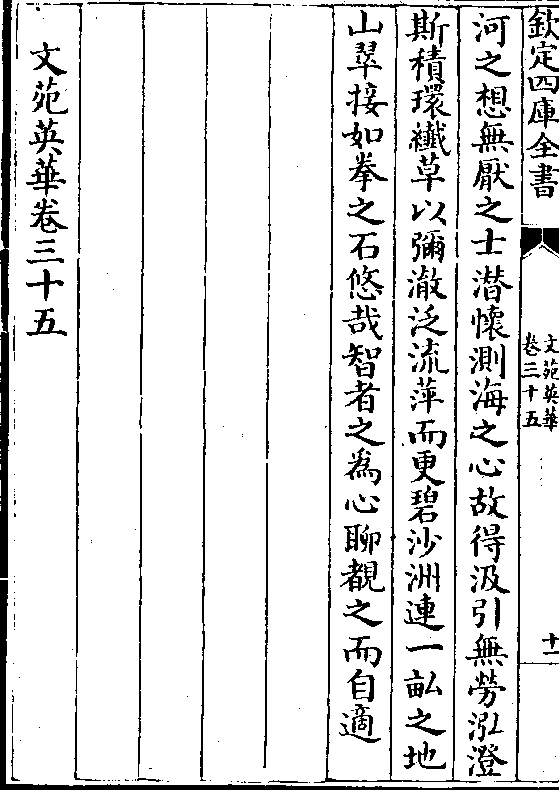 欽定四庫全書
文苑英華
卷三十五
十一
河之想無厭之士潛懷測海之心故得汲引無勞泓澄
斯積環纖草以彌澈泛流萍而更碧沙洲連一畝之地
山翠接如拳之石悠哉智者之為心聊覩之而自適
文苑英華卷三十五